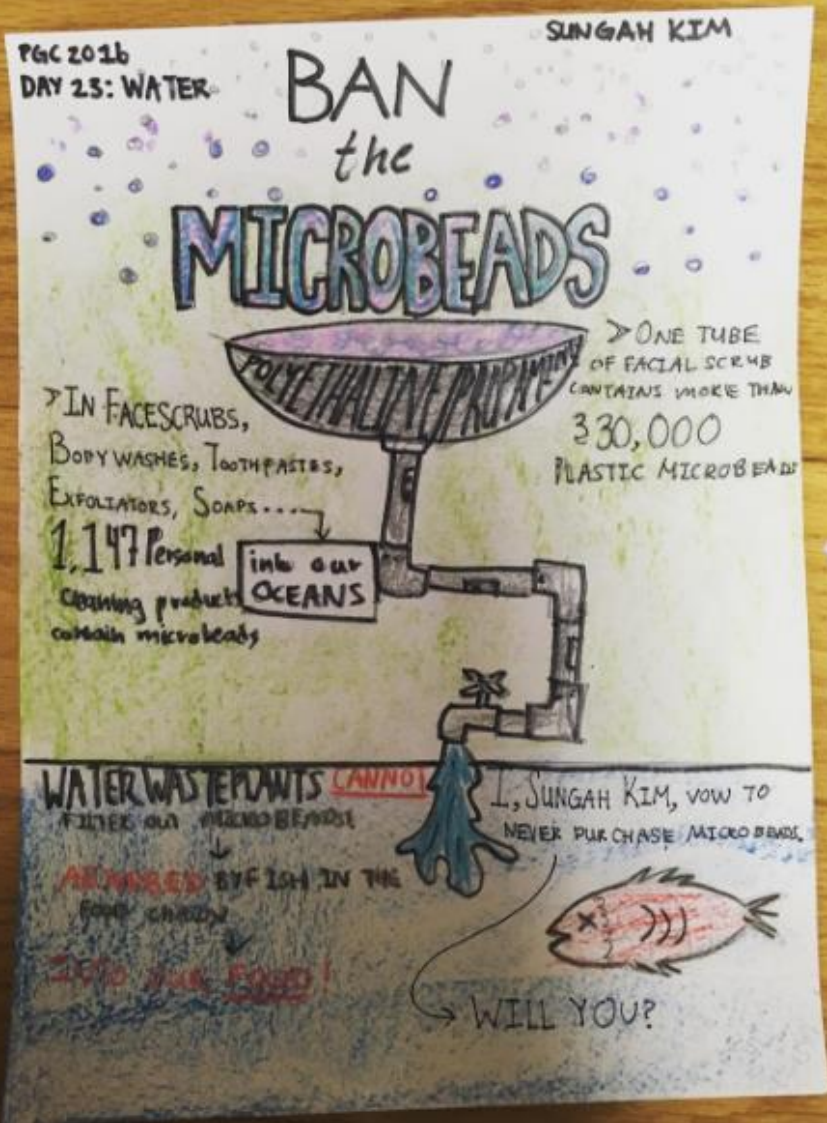 PGC 2016
DAY 23: WATER
SUNGAH KIM
BAN
the
MICROBEADS
POLYETHALINE/PROPAMINE
> ONE TUBE
OF FACIAL SCRUB
CONTAINS MORE THAN
330,000
PLASTIC MICROBEADS
> IN FACESCRUBS,
BODY WASHES, TOOTHPASTES,
EXFOLIATORS, SOAPS....
1,147 Personal
cleaning products
contain microbeads
into our
OCEANS
WATER WASTE PLANTS CANNOT
FILTER OUT MICROBEADS!
ABSORBED BY FISH IN THE
FOOD CHAIN
INTO our FOOD!
I, SUNGAH KIM, VOW TO
NEVER PURCHASE MICROBEADS.
WILL YOU?